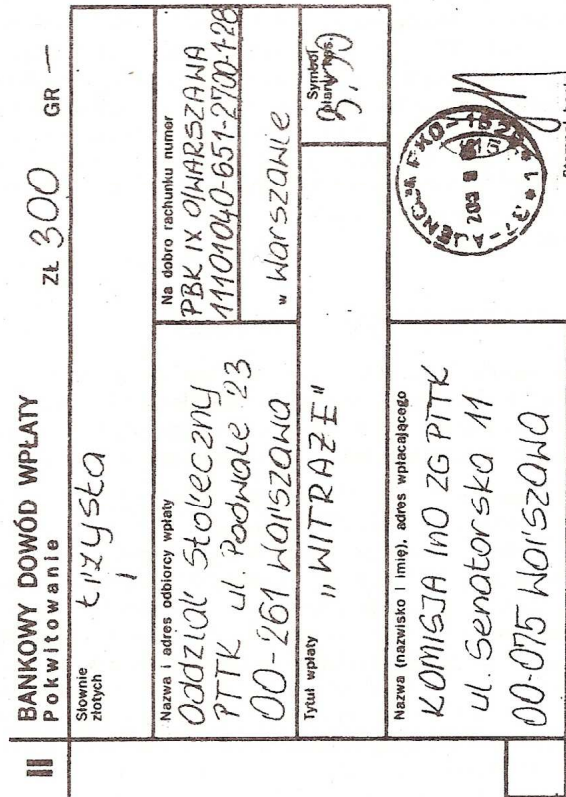 II
BANKOWY DOWÓD WPŁATY
Pokwitowanie
ZŁ 300 GR —
Słownie
złotych
trzysta
Nazwa i adres odbiorcy wpłaty
Oddział Stołeczny
PTTK ul. Podwale 23
00-261 Warszawa
Na dobro rachunku numer
PBK IX O/WARSZAWA
11101040-651-2700-1-28
w Warszawie
Tytuł wpłaty
„WITRAŻE"
Symbol
Nazwa (nazwisko i imię), adres wpłacającego
KOMISJA InO ZG PTTK
ul. Senatorska 11
00-075 Warszawa